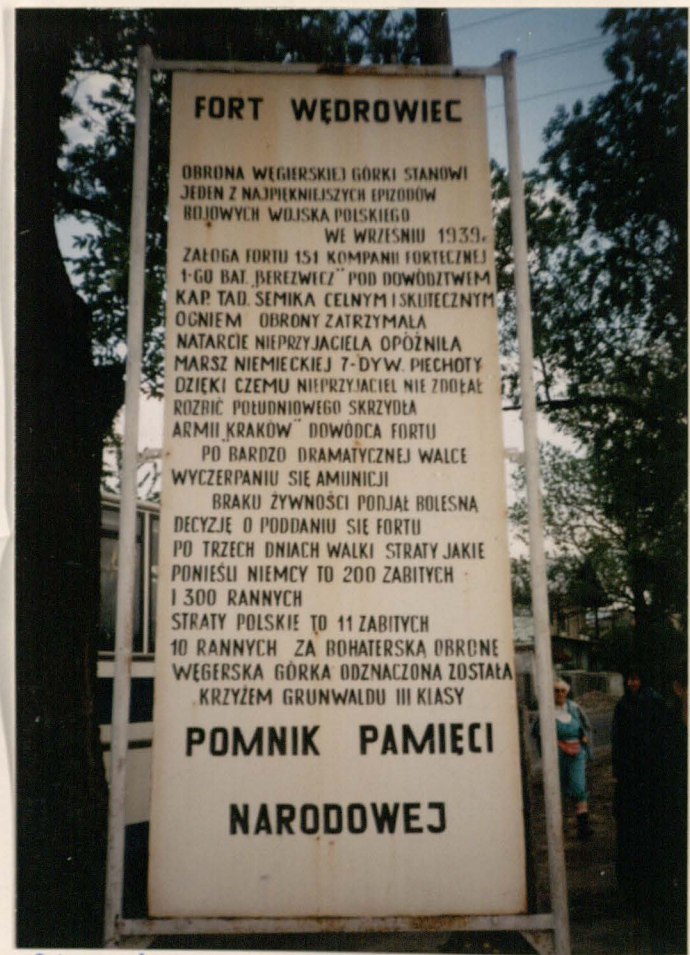 FORT WĘDROWIEC
OBRONA WĘGIERSKIEJ GÓRKI STANOWI
JEDEN Z NAJPIĘKNIEJSZYCH EPIZODÓW
BOJOWYCH WOJSKA POLSKIEGO
WE WRZEŚNIU 1939r.
ZAŁOGA FORTU 151 KOMPANII FORTECZNEJ
1-GO BAT. „BEREZWECZ" POD DOWÓDZTWEM
KAP. TAD. SEMIKA CELNYM I SKUTECZNYM
OGNIEM OBRONY ZATRZYMAŁA
NATARCIE NIEPRZYJACIELA OPÓŹNIŁA
MARSZ NIEMIECKIEJ 7-DYW. PIECHOTY
DZIĘKI CZEMU NIEPRZYJACIEL NIE ZDOŁAŁ
ROZBIĆ POŁUDNIOWEGO SKRZYDŁA
ARMII „KRAKÓW" DOWÓDCA FORTU
PO BARDZO DRAMATYCZNEJ WALCE
WYCZERPANIU SIĘ AMUNICJI
BRAKU ŻYWNOŚCI PODJĄŁ BOLESNĄ
DECYZJĘ O PODDANIU SIĘ FORTU
PO TRZECH DNIACH WALKI STRATY JAKIE
PONIEŚLI NIEMCY TO 200 ZABITYCH
I 300 RANNYCH
STRATY POLSKIE TO 11 ZABITYCH
10 RANNYCH ZA BOHATERSKĄ OBRONĘ
WĘGERSKA GÓRKA ODZNACZONA ZOSTAŁA
KRZYŻEM GRUNWALDU III KLASY
POMNIK PAMIĘCI
NARODOWEJ